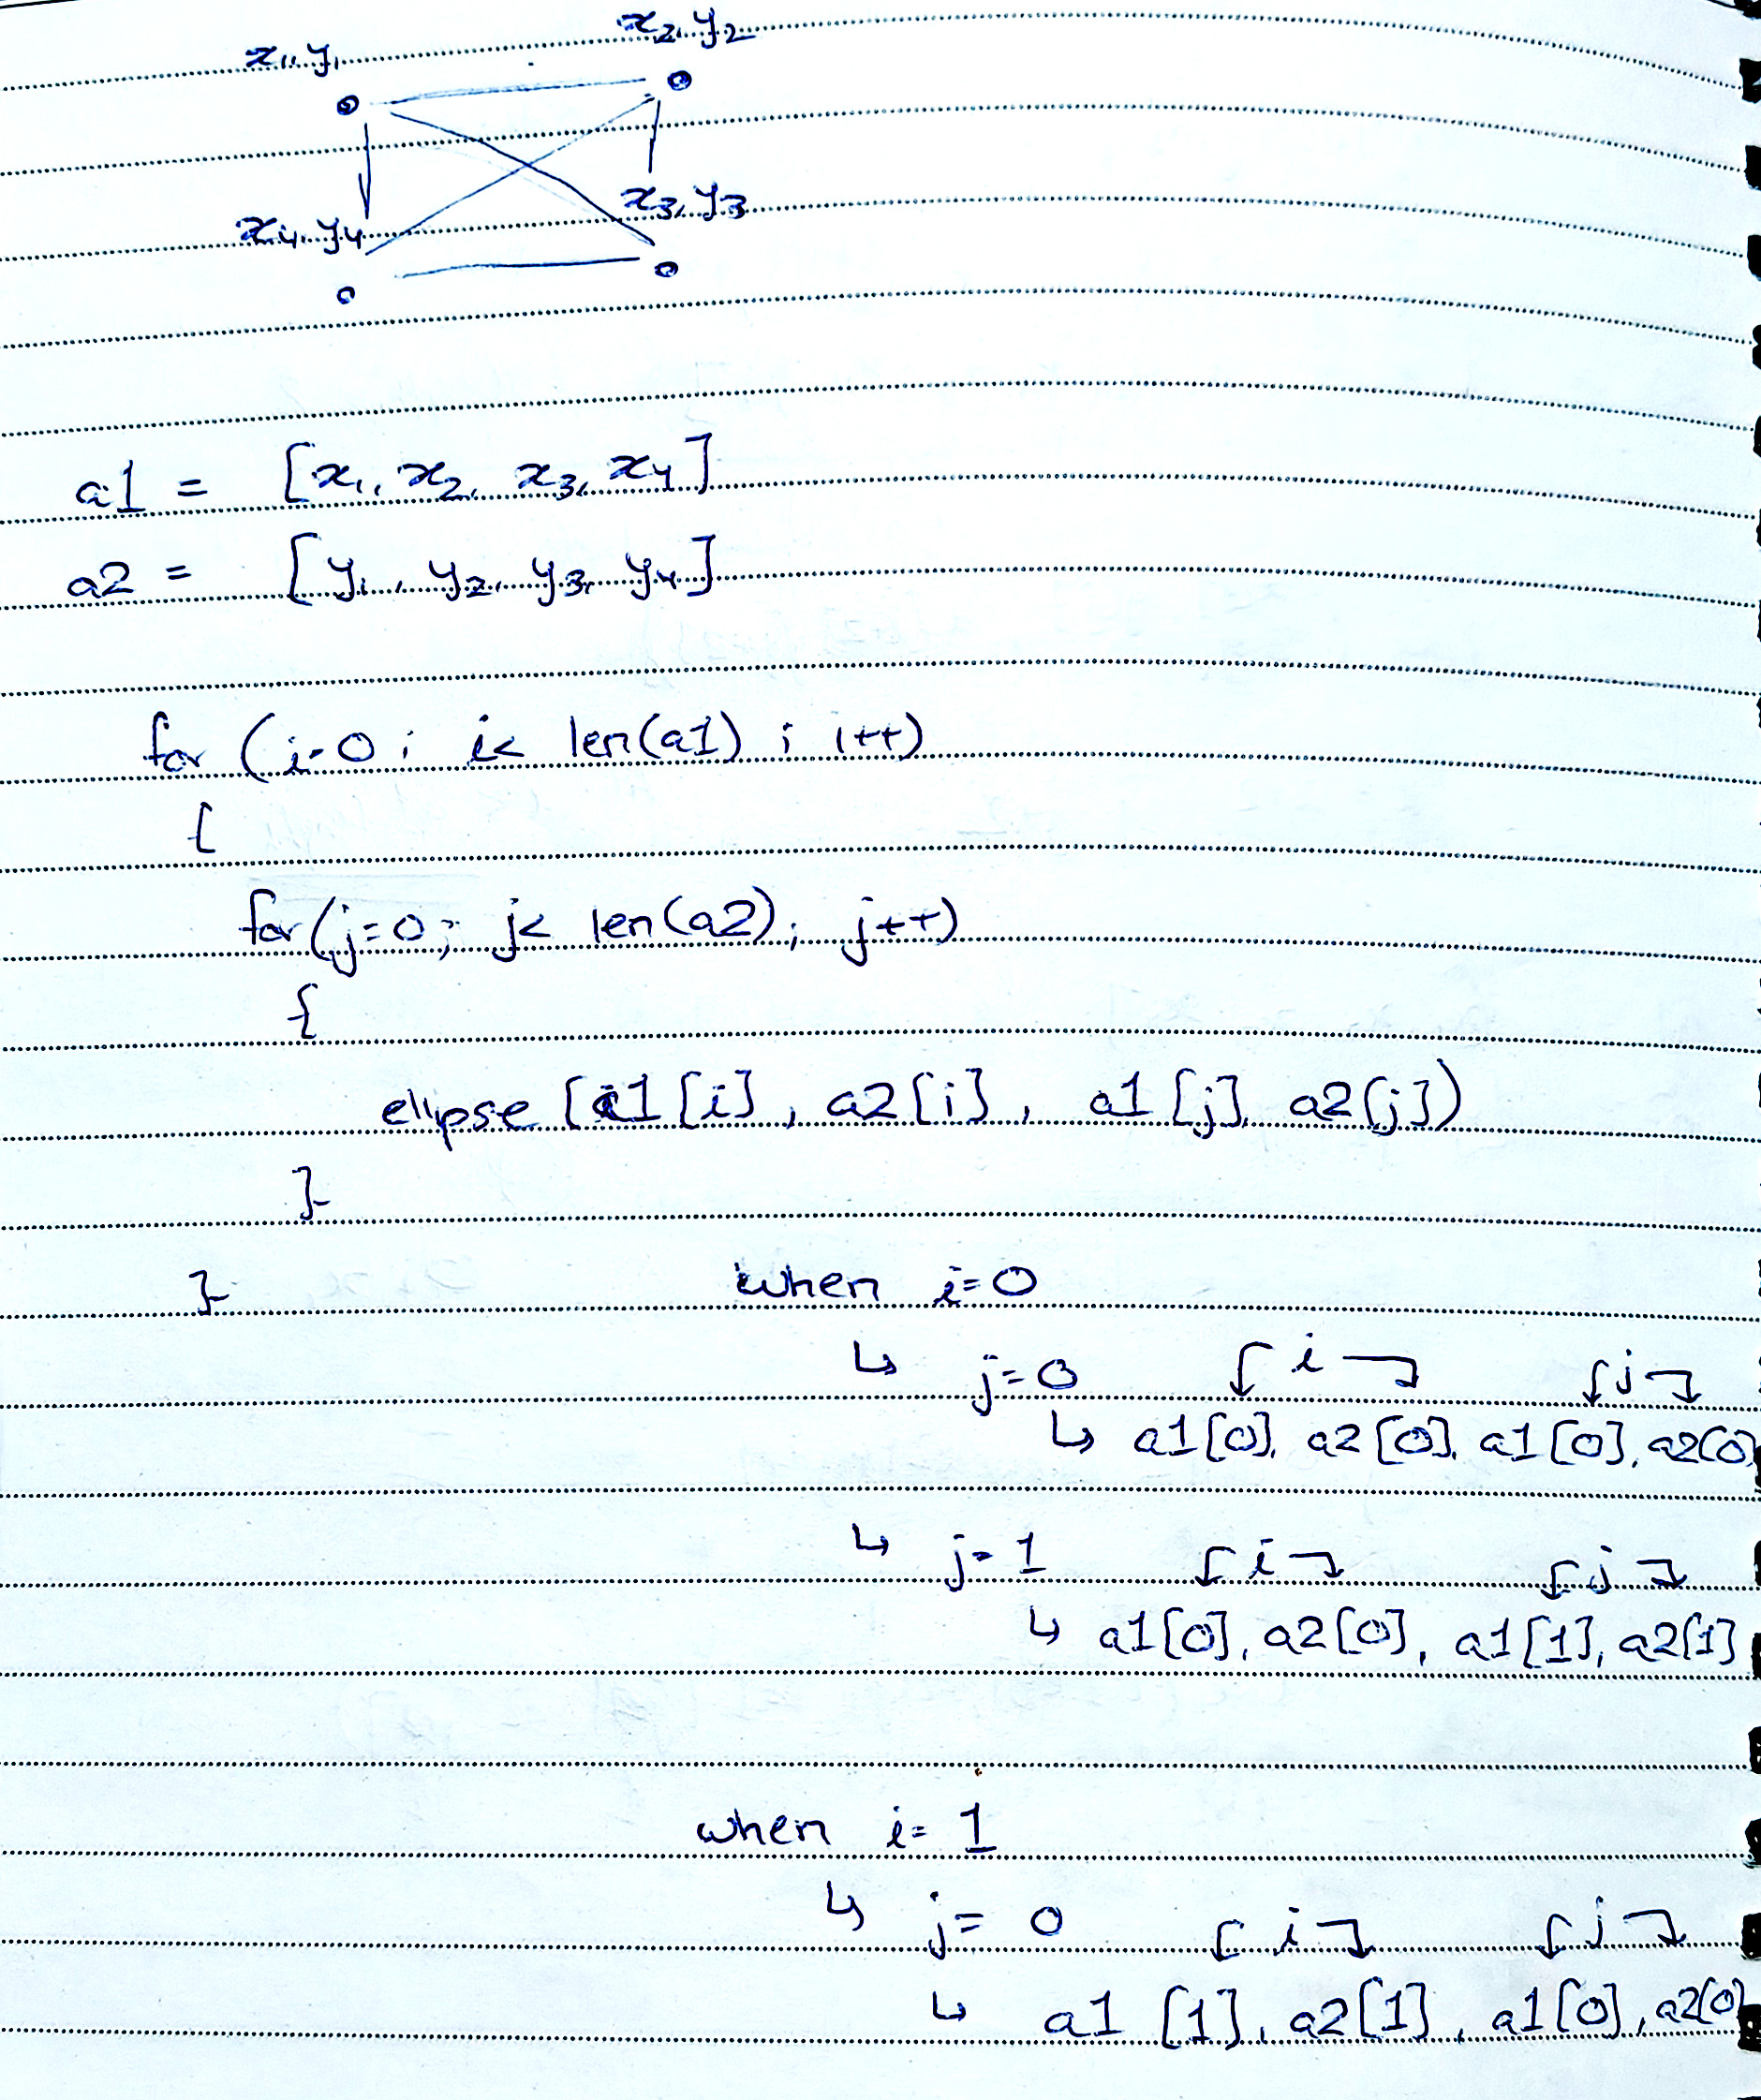 x1, y1
x2, y2
x4, y4
x3, y3
a1 = [x1, x2, x3, x4]
a2 = [y1, y2, y3, y4]
for (i=0; i< len(a1); i++)
{
for(j=0; j< len(a2); j++)
{
ellipse [a1[i], a2[i], a1[j], a2[j])
}
}
when i=0
↳ j=0 i j
↳ a1[0], a2[0], a1[0], a2[0]
↳ j=1 i j
↳ a1[0], a2[0], a1[1], a2[1]
when i= 1
↳ j= 0 i j
↳ a1 [1], a2[1], a1[0], a2[0]